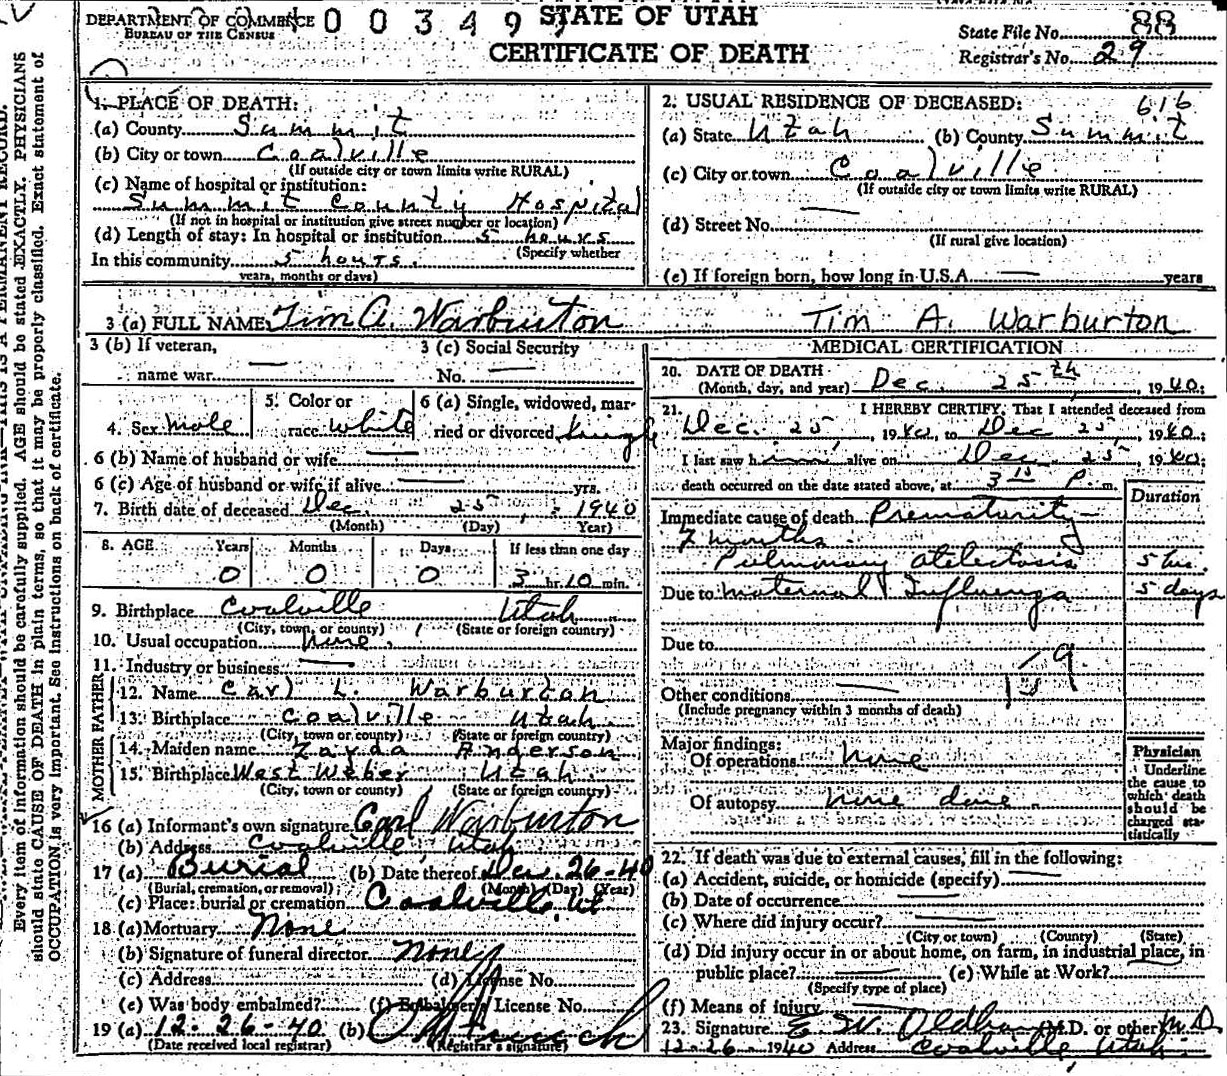 DEPARTMENT OF COMMERCE
BUREAU OF THE CENSUS
0 0 3 4 9 9
STATE OF UTAH
CERTIFICATE OF DEATH
State File No. 88
Registrar's No. 29
Every item of information should be carefully supplied. AGE should be stated EXACTLY. PHYSICIANS
should state CAUSE OF DEATH in plain terms, so that it may be properly classified. Exact statement of
OCCUPATION is very important. See instructions on back of certificate.
1. PLACE OF DEATH:
(a) County Summit
(b) City or town Coalville
(If outside city or town limits write RURAL)
(c) Name of hospital or institution:
Summit County Hospital
(If not in hospital or institution give street number or location)
(d) Length of stay: In hospital or institution 5 hours
(Specify whether
In this community 5 hours.
years, months or days)
2. USUAL RESIDENCE OF DECEASED:
616
(a) State Utah (b) County Summit
(c) City or town Coalville
(If outside city or town limits write RURAL)
(d) Street No. —
(If rural give location)
(e) If foreign born, how long in U.S.A. — years
3 (a) FULL NAME Tim A. Warburton Tim A. Warburton
3 (b) If veteran,
name war —
3 (c) Social Security
No. —
4. Sex Male
5. Color or
race white
6 (a) Single, widowed, mar-
ried or divorced Single
6 (b) Name of husband or wife —
6 (c) Age of husband or wife if alive — yrs.
7. Birth date of deceased Dec. 25, 1940
(Month) (Day) Year)
8. AGE Years Months Days If less than one day
0 0 0 3 hr. 10 min.
9. Birthplace Coalville Utah
(City, town, or county) (State or foreign country)
10. Usual occupation None
11. Industry or business —
FATHER
12. Name Carl L. Warburton
13. Birthplace Coalville Utah
(City, town or county) (State or foreign country)
MOTHER
14. Maiden name Zayda Anderson
15. Birthplace West Weber Utah.
(City, town or county) (State or foreign country)
16 (a) Informant's own signature Carl Warburton
(b) Address Coalville, Utah
17 (a) Burial (b) Date thereof Dec. 26-40
(Burial, cremation, or removal) (Month) (Day) (Year)
(c) Place: burial or cremation Coalville, Ut
18 (a) Mortuary None
(b) Signature of funeral director None
(c) Address (d) License No.
(e) Was body embalmed? (f) Embalmer's License No.
19 (a) 12-26-40 (b)
(Date received local registrar) (Registrar's signature)
MEDICAL CERTIFICATION
20. DATE OF DEATH
(Month, day, and year) Dec. 25th, 1940
21. I HEREBY CERTIFY, That I attended deceased from
Dec. 25, 1940, to Dec 25, 1940
I last saw him alive on Dec. 25 1940
death occurred on the date stated above, at 3 10 P m.
Duration
Immediate cause of death Prematurity —
7 months.
Pulmonary atelectasis 5 hrs.
Due to maternal Influenza 5 days
Due to
159
Other conditions —
(Include pregnancy within 3 months of death)
Major findings:
Of operations None
Of autopsy none done
Physician
Underline
the cause to
which death
should be
charged sta-
tistically
22. If death was due to external causes, fill in the following:
(a) Accident, suicide, or homicide (specify) —
(b) Date of occurrence —
(c) Where did injury occur? —
(City or town) (County) (State)
(d) Did injury occur in or about home, on farm, in industrial place, in
public place? — (e) While at Work? —
(Specify type of place)
(f) Means of injury —
23. Signature E. W. Oldham (M.D. or other) M.D.
12-26 1940 Address Coalville, Utah.